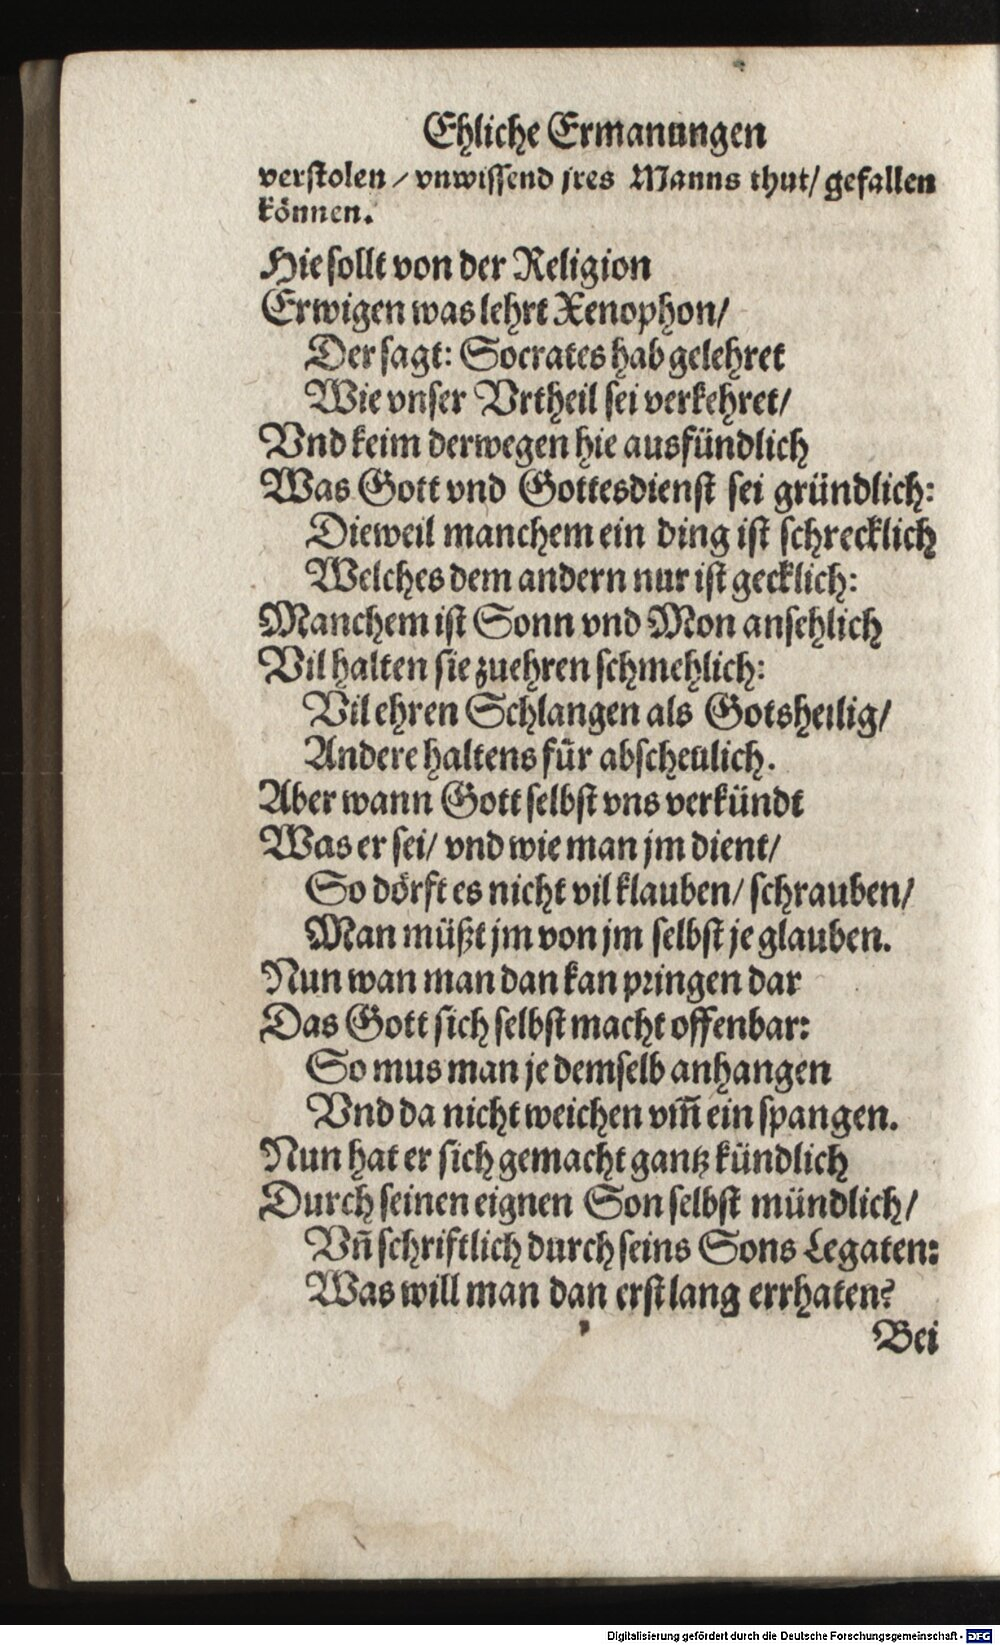 Ehliche Ermanungen
verstolen / vnwissend jres Manns thut / gefallen
können.
Hie sollt von der Religion
Erwigen was lehrt Xenophon /
Der sagt: Socrates hab gelehret
Wie vnser Vrtheil sei verkehret /
Vnd keim derwegen hie ausfündlich
Was Gott vnd Gottesdienst sei gründlich:
Dieweil manchem ein ding ist schrecklich
Welches dem andern nur ist gecklich:
Manchem ist Sonn vnd Mon ansehlich
Vil halten sie zuehren schmehlich:
Vil ehren Schlangen als Gotsheilig /
Andere haltens für abscheulich.
Aber wann Gott selbst vns verkündt
Was er sei / vnd wie man jm dient /
So dörft es nicht vil klauben / schrauben /
Man müßt jm von jm selbst je glauben.
Nun wan man dan kan pringen dar
Das Gott sich selbst macht offenbar:
So mus man je demselb anhangen
Vnd da nicht weichen vm̃ ein spangen.
Nun hat er sich gemacht gantz kündlich
Durch seinen eignen Son selbst mündlich /
Vñ schriftlich durch seins Sons Legaten:
Was will man dan erst lang errhaten?
Bei
Digitalisierung gefördert durch die Deutsche Forschungsgemeinschaft - DFG